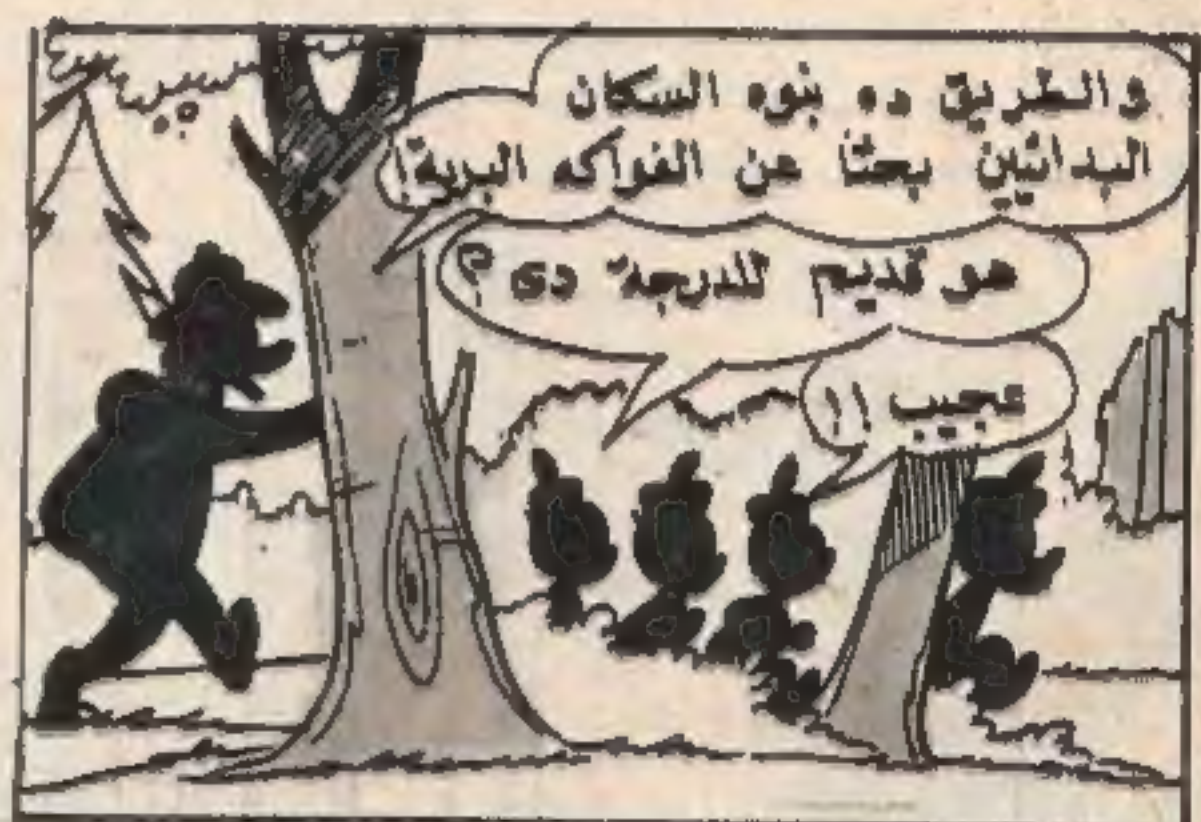 والطريق ده بنوه السكان
البدائيين بحثاً عن الفواكه البرية!
هو قديم للدرجة دى ؟
عجيب !!